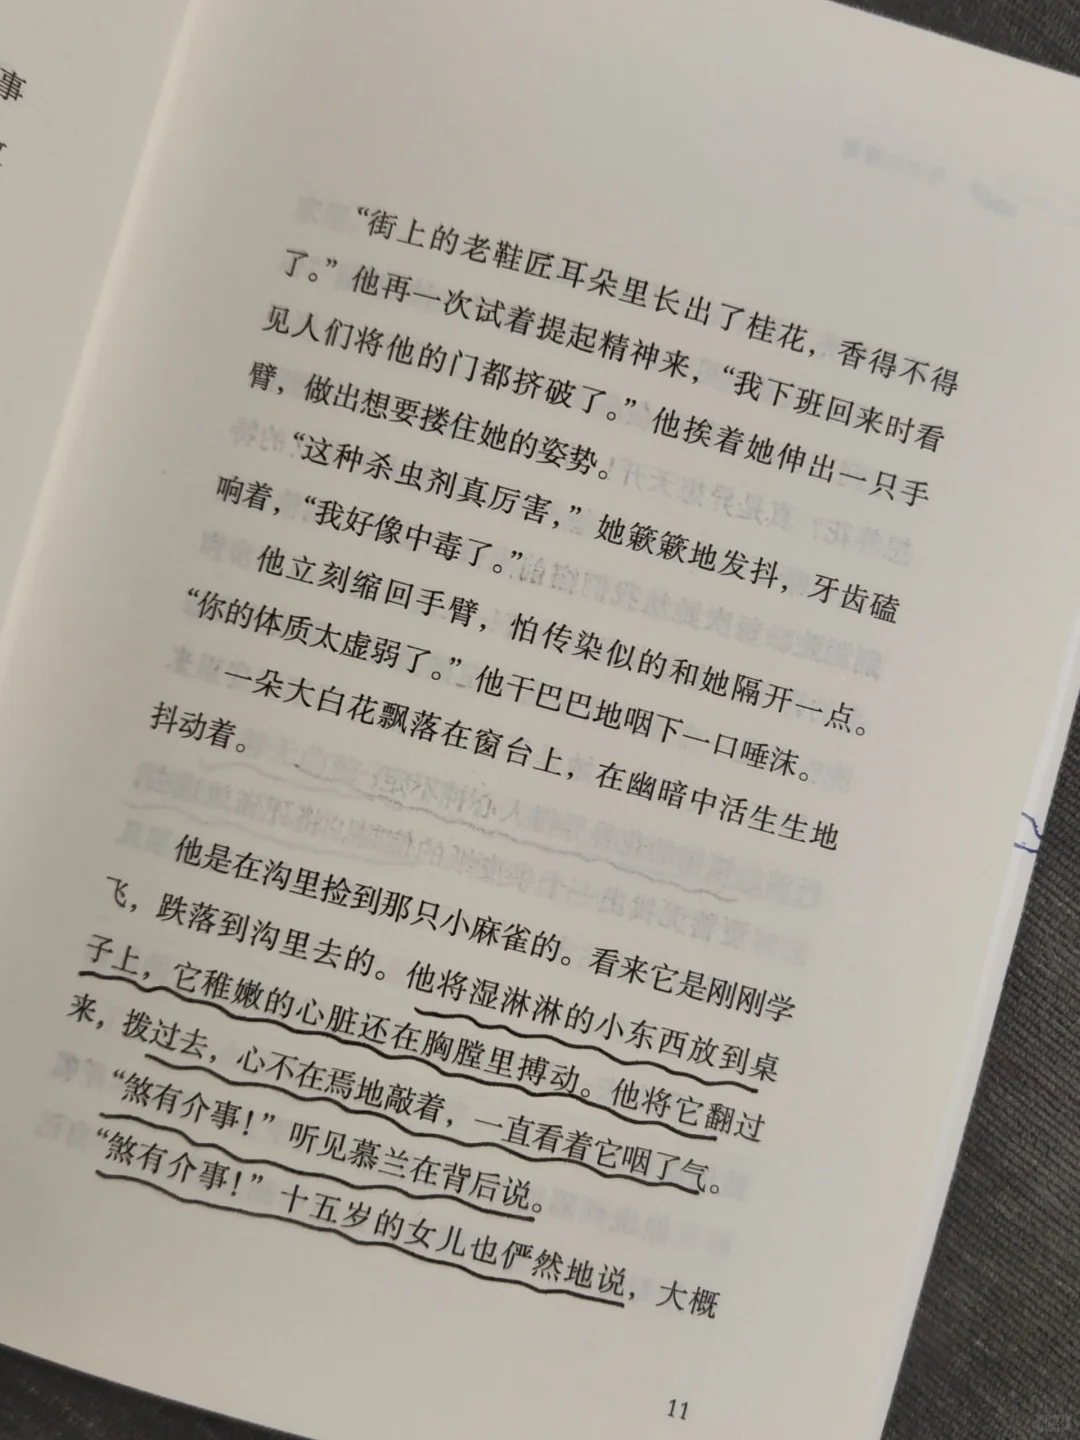 事
“街上的老鞋匠耳朵里长出了桂花，香得不得
了。”他再一次试着提起精神来，“我下班回来时看
见人们将他的门都挤破了。”他挨着她伸出一只手
臂，做出想要搂住她的姿势。
“这种杀虫剂真厉害，”她簌簌地发抖，牙齿磕
响着，“我好像中毒了。”
他立刻缩回手臂，怕传染似的和她隔开一点。
“你的体质太虚弱了。”他干巴巴地咽下一口唾沫。
一朵大白花飘落在窗台上，在幽暗中活生生地
抖动着。
他是在沟里捡到那只小麻雀的。看来它是刚刚学
飞，跌落到沟里去的。他将湿淋淋的小东西放到桌
子上，它稚嫩的心脏还在胸膛里搏动。他将它翻过
来，拨过去，心不在焉地敲着，一直看着它咽了气。
“煞有介事！”听见慕兰在背后说。
“煞有介事！”十五岁的女儿也俨然地说，大概
11